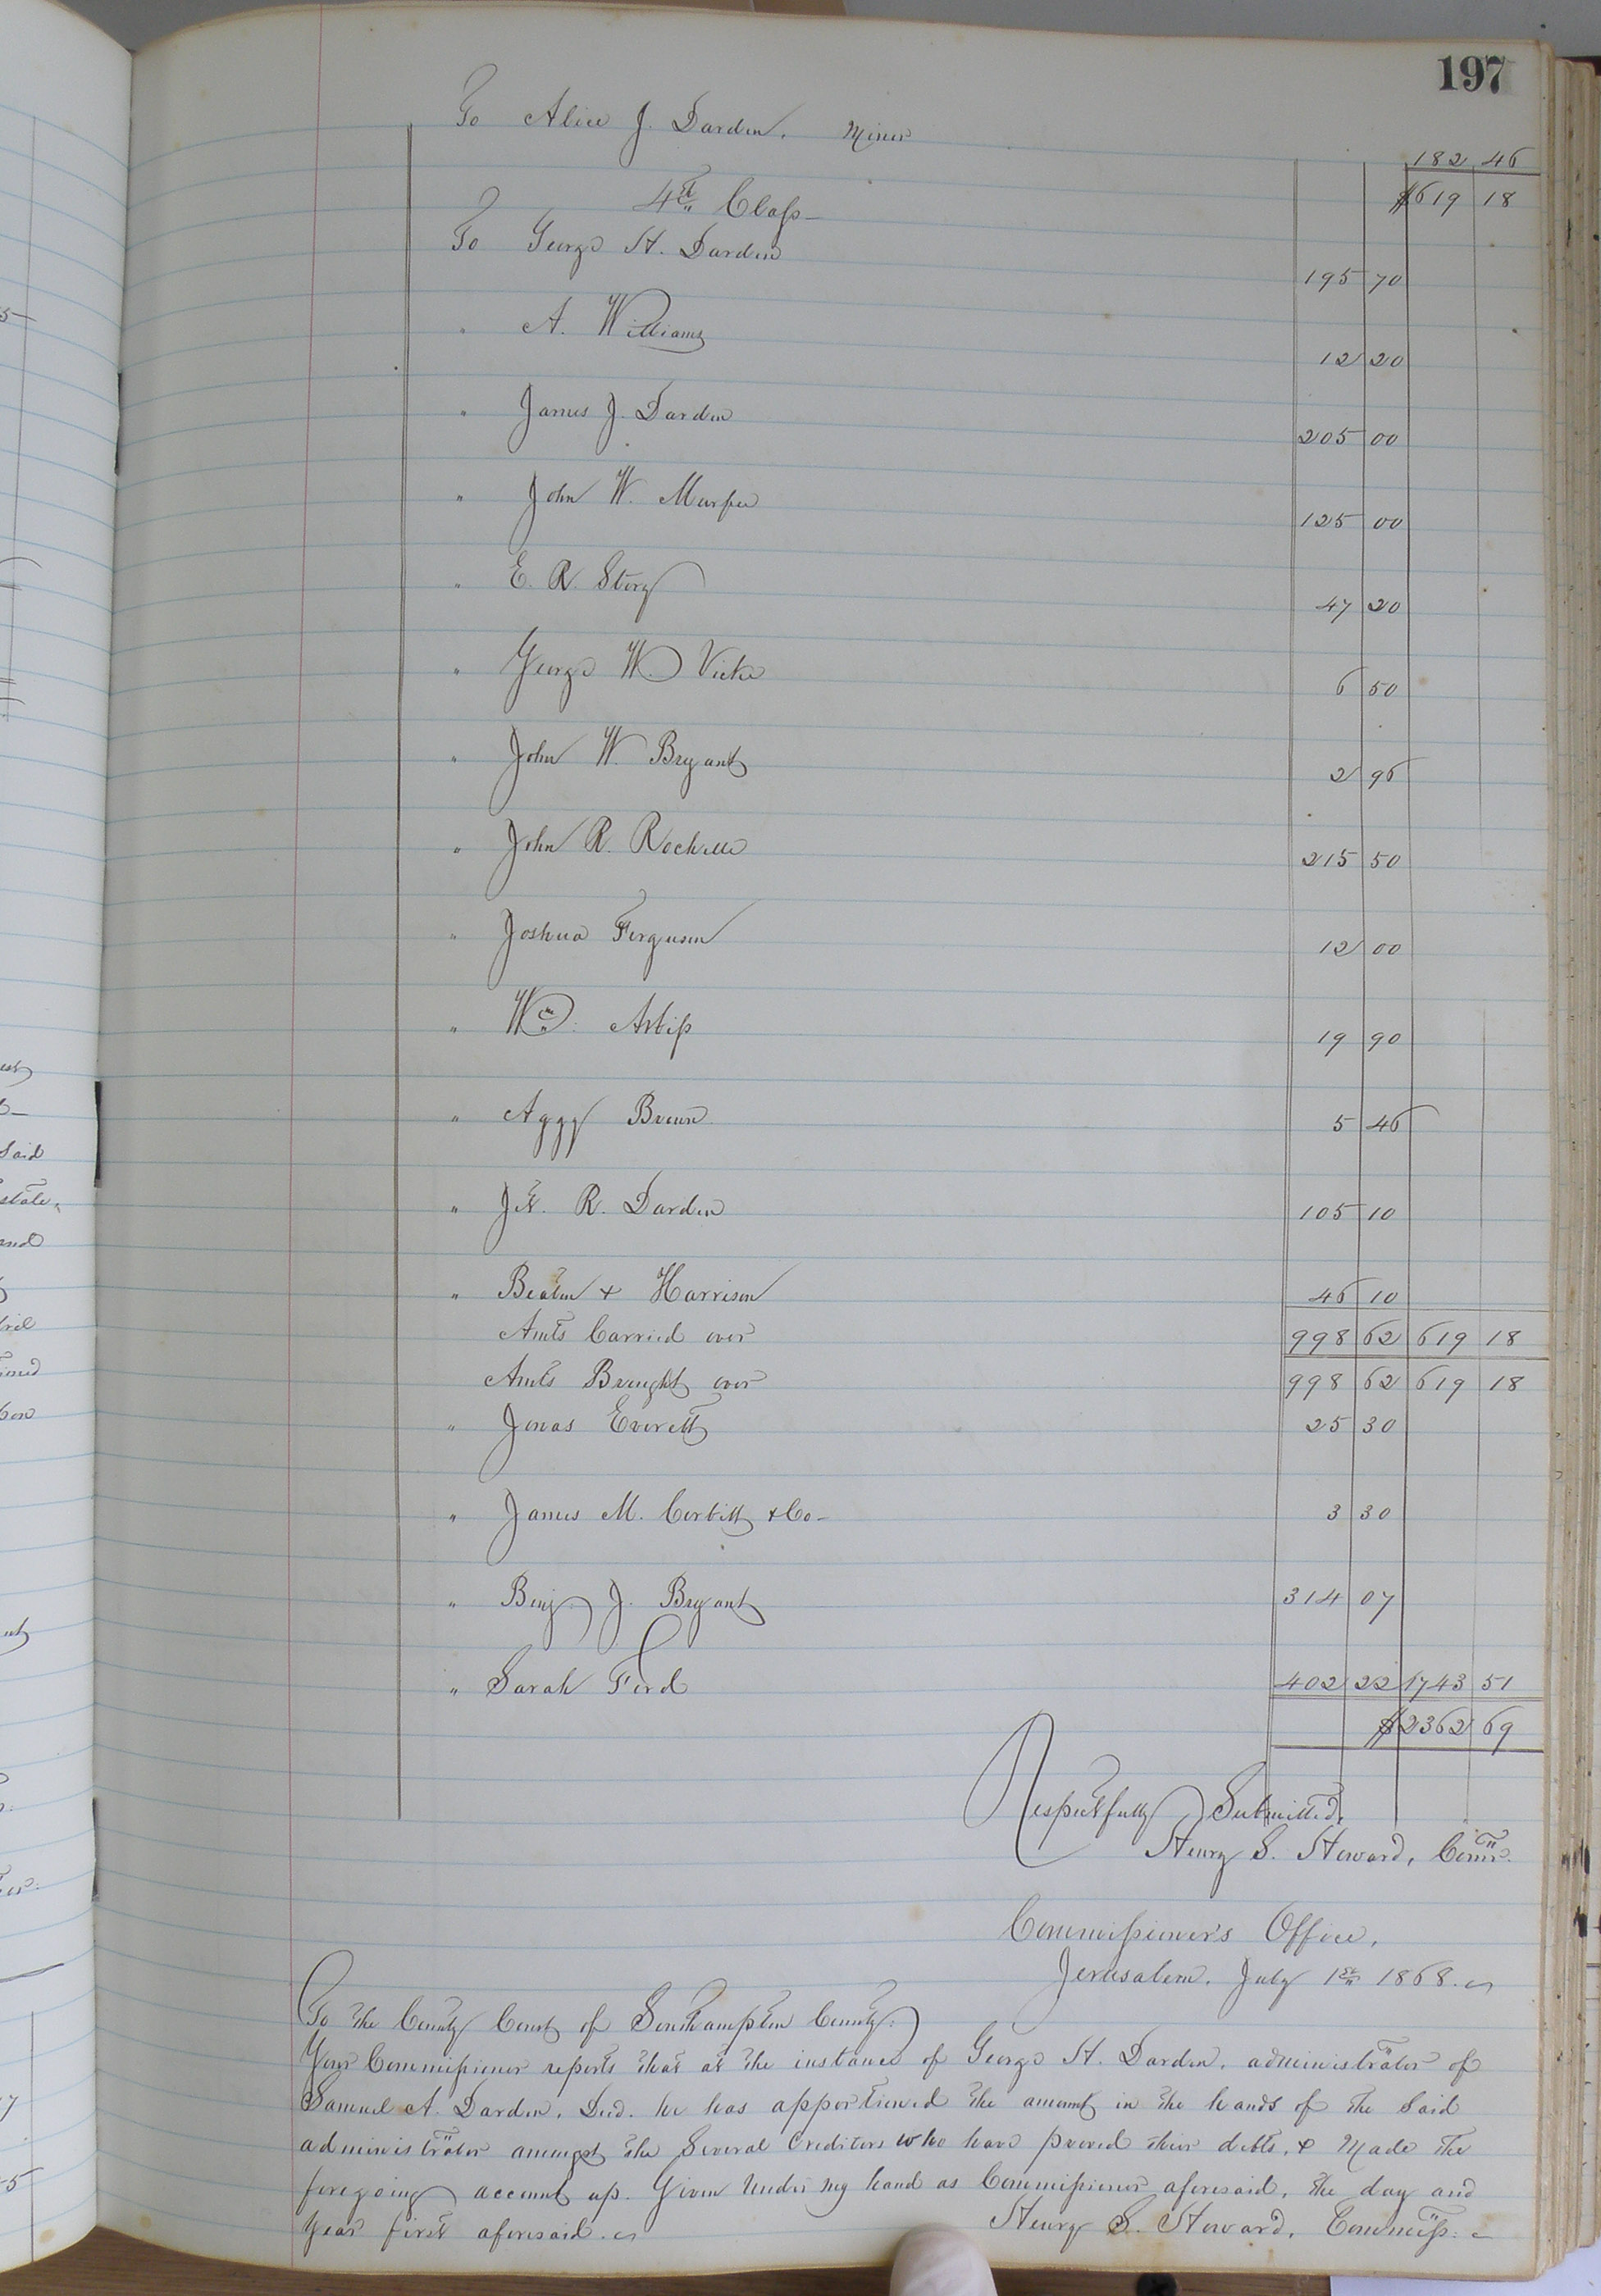 197
To Alice J. Darden, Minor 182 46
4th Class $619 18
To George H. Darden 195 70
" A. Williams 12 20
" James J. Darden 205 00
" John W. Murfee 125 00
" E. R. Story 47 20
" George W. Vick 6 50
" John W. Bryant 2 96
" John R. Rochelle 215 50
" Joshua Ferguson 12 00
" Wm. Artis 19 90
" Aggy Brown 5 46
" Jet. R. Darden 105 10
" Beaton & Harrison 46 10
Amts Carried over 998 62 619 18
Amts Brought over 998 62 619 18
" Jonas Everett 25 30
" James M. Corbitt & Co - 3 30
" Benj. J. Bryant 314 07
" Sarah Ford 402 22 1743 51
$2362 69
Respectfully Submitted,
Henry S. Howard, Comr.
Commissioner's Office,
Jerusalem, July 1st 1868.
To the County Court of Southampton County:
Your Commissioner reports that at the instance of George H. Darden, administrator of
Samuel A. Darden, Decd. he has apportioned the amount in the hands of the Said
administrator amongst the Several Creditors who have proved their debts, & Made the
foregoing account up. Given Under my hand as Commissioner aforesaid, the day and
Year first aforesaid.
Henry S. Howard, Commiss: